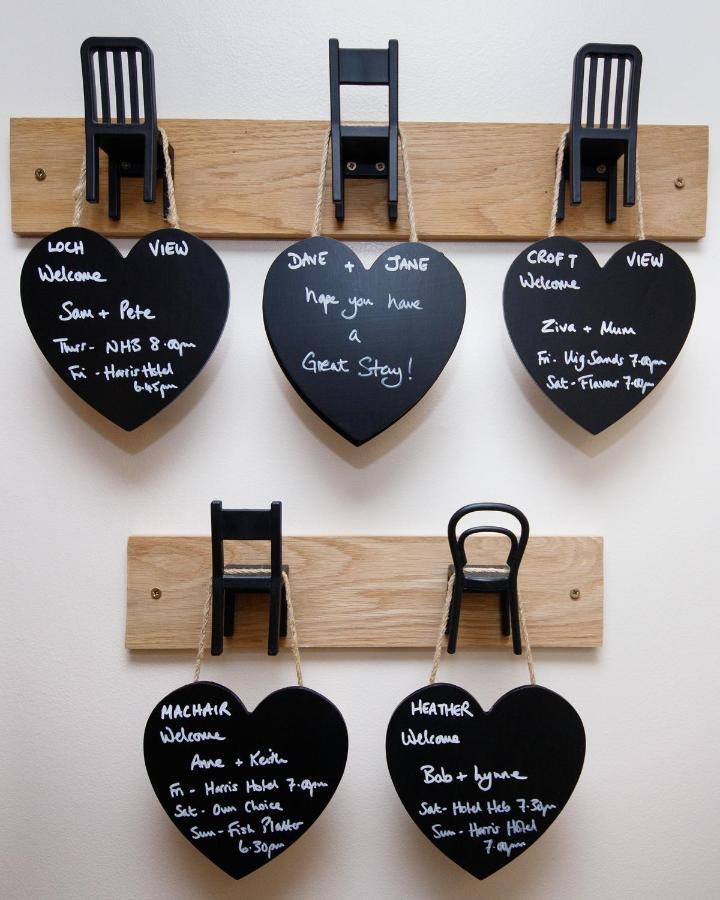 LOCH VIEW
Welcome
Sam + Pete
Thurs - NHB 8.00pm
Fri - Harris Hotel
6.45pm
DAVE + JANE
hope you have
a
Great Stay!
CROFT VIEW
Welcome
Ziva + Mum
Fri. Uig Sands 7.00pm
Sat - Flavour 7.00pm
MACHAIR
Welcome
Anne + Keith
Fri - Harris Hotel 7.00pm
Sat - Own Choice
Sun - Fish Platter
6.30pm
HEATHER
Welcome
Bob + Lynne
Sat - Hotel Heb 7.30pm
Sun - Harris Hotel
7.00pm